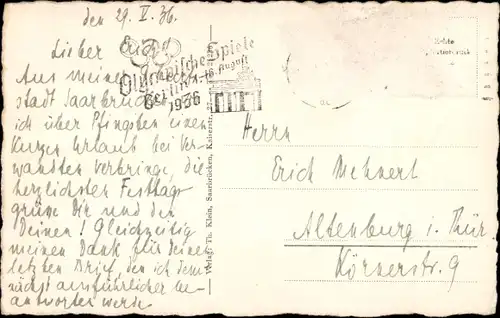 den 29. V. 36.
Lieber Erich!
Aus meiner
stadt Saarbrücken
ich über Pfingsten einen
kurzen Urlaub bei Ver-
wandten verbringe, die
herzlichsten Festtags-
grüße Dir und den
Deinen! Gleichzeitig
meinen Dank für Deinen
letzten Brief, den ich dem-
nächst ausführlicher be-
antworten werde.
Olympische Spiele
Berlin 1.-16. August
1936
Verlag: Th. Klein, Saarbrücken, Kaiserstr.
Echte
Herrn
Erich Mehnert
Altenburg i. Thür
Körnerstr. 9